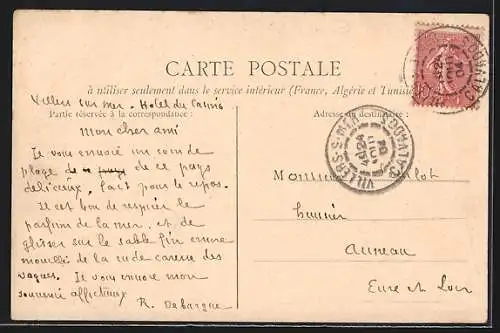 CARTE POSTALE
à utiliser seulement dans le service intérieur (France, Algérie et Tunisie)
Villers sur mer - Hotel du Casino
Partie réservée à la correspondance :
Mon cher ami
Je vous envoie un coin de
plage de ce pays
délicieux, fait pour le repos.
Il est bon de respirer le
parfum de la mer, et de
glisser sur le sable fin encore
mouillé de la rude caresse des
vagues. Je vous envoie mon
souvenir affectueux
R. Debargue
Adresse du destinataire :
VILLERS-S-MER
CALVADOS
Monsieur
huissier
Auneau
Eure et Loir
CALVADOS
04